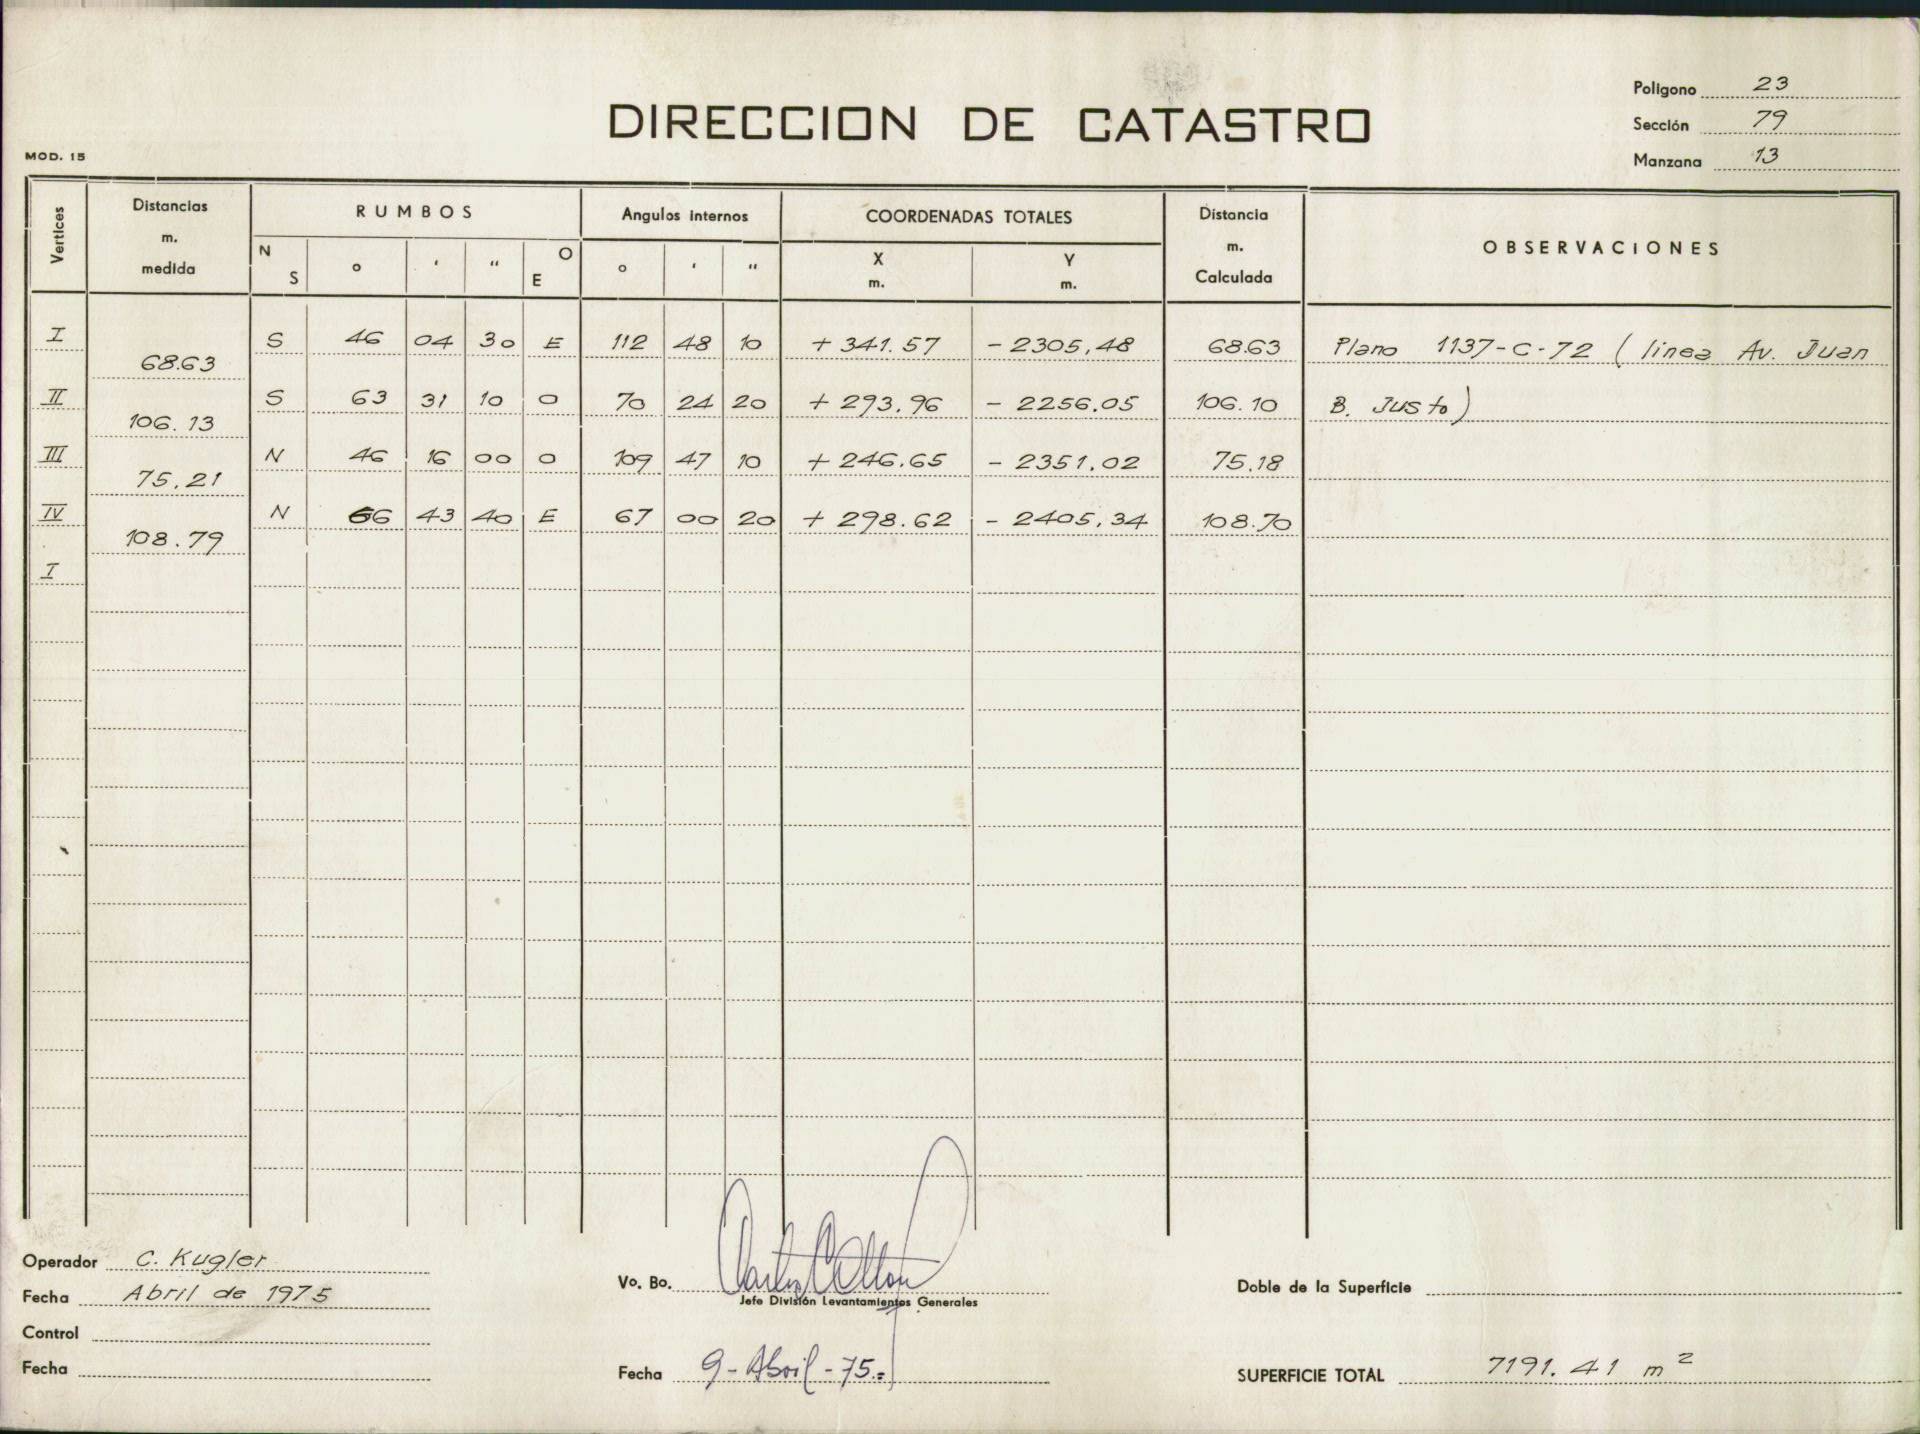 DIRECCION DE CATASTRO
Polígono 23
Sección 79
Manzana 13
MOD. 15
Vertices Distancias m. medida RUMBOS N S o ' " O E Angulos internos o ' " COORDENADAS TOTALES X m. Y m. Distancia m. Calculada OBSERVACIONES
I S 46 04 30 E 112 48 10 + 341.57 - 2305,48 68.63 Plano 1137-C-72 ( línea Av. Juan
68.63
II S 63 31 10 O 70 24 20 + 293.96 - 2256.05 106.10 B. Justo)
106.13
III N 46 16 00 O 109 47 10 + 246.65 - 2351.02 75.18
75.21
IV N 66 43 40 E 67 00 20 + 298.62 - 2405,34 108.70
108.79
I
Operador C. Kugler
Fecha Abril de 1975
Control
Fecha
Vo. Bo.
Jefe División Levantamientos Generales
Fecha 9-Abril-75.=
Doble de la Superficie
SUPERFICIE TOTAL 7191.41 m²